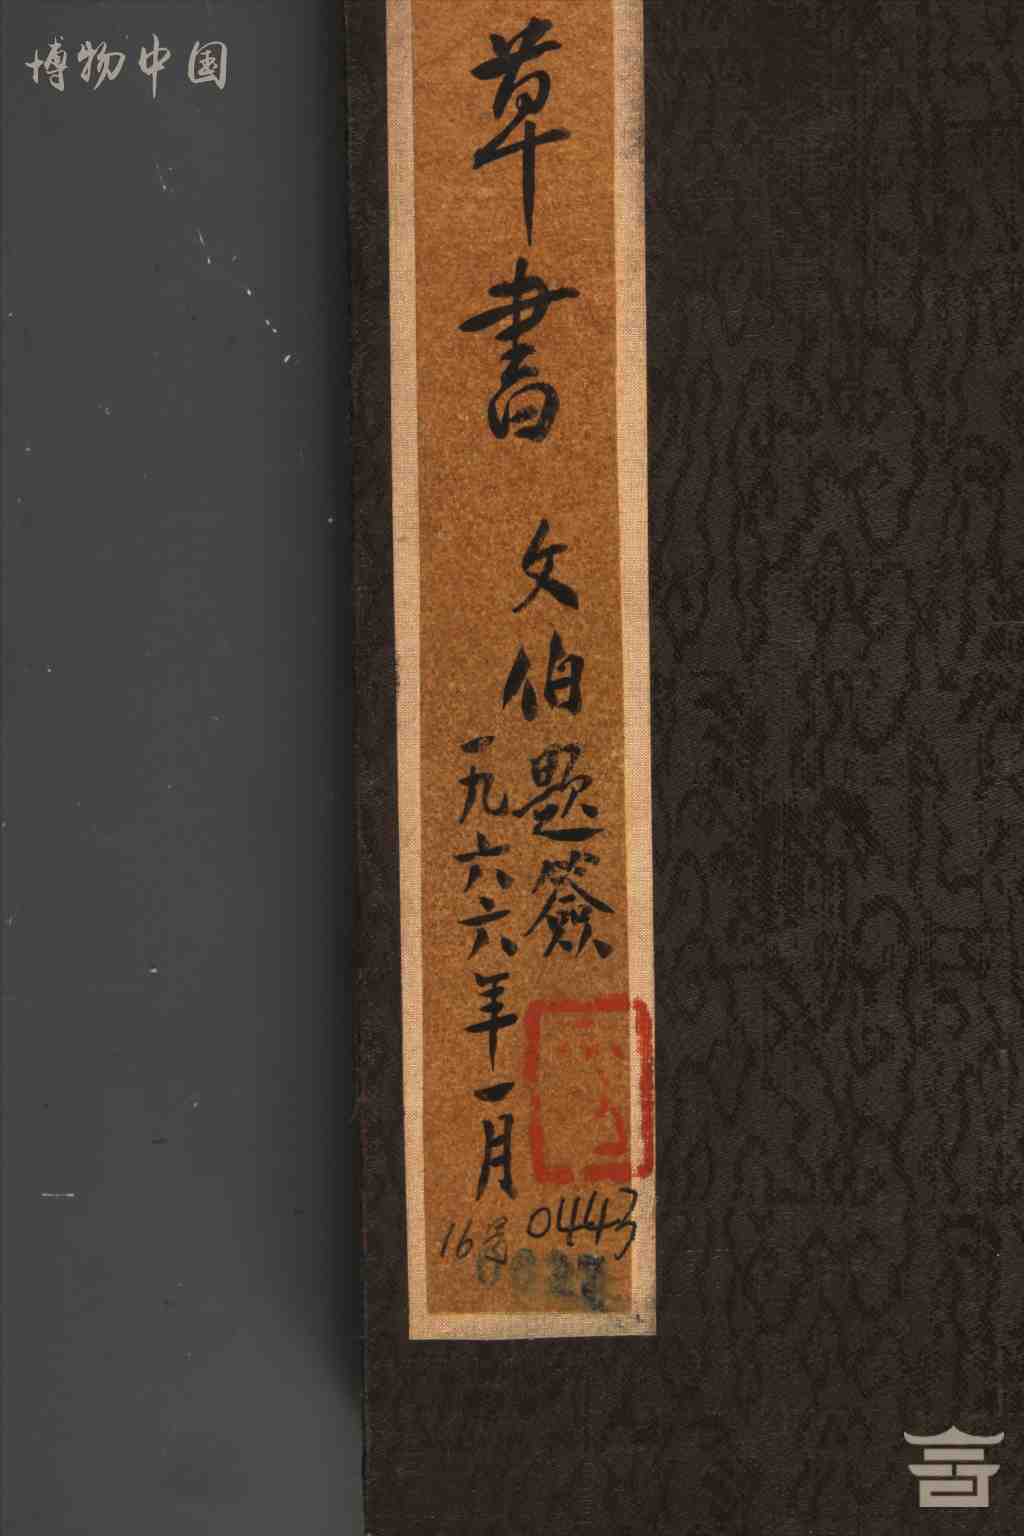 博物中国
草書
文伯題簽
一九六六年一月
16号
0443